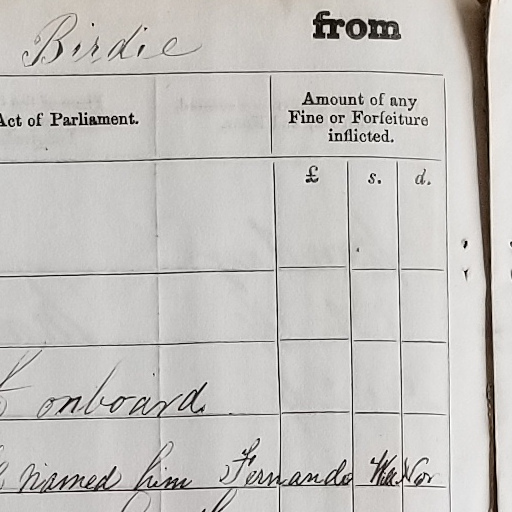 Birdie from
Act of Parliament.
Amount of any
Fine or Forfeiture
inflicted.
£ s. d.
onboard.
named him Fernando